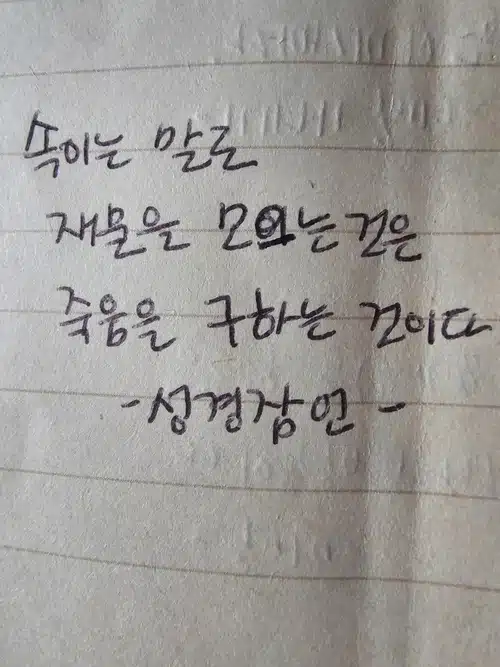 속이는 말로
재물을 모으는 것은
죽음을 구하는 것이다
-성경잠언-